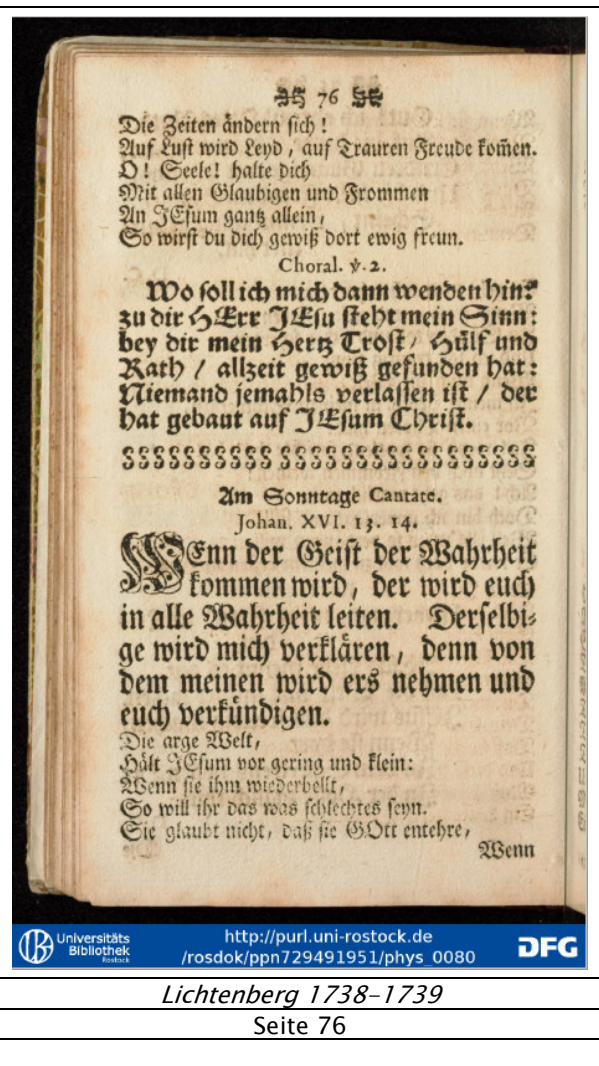 76
Die Zeiten ändern sich !
Auf Lust wird Leyd , auf Trauren Freude kom̃en.
O ! Seele! halte dich
Mit allen Glaubigen und Frommen
An JEsum gantz allein,
So wirst du dich gewiß dort ewig freun.
Choral. ℣. 2.
WO soll ich mich dann wenden hin?
zu dir HErr JEsu steht mein Sinn:
bey dir mein Hertz Trost / Hülf und
Rath / allzeit gewiß gefunden hat:
Niemand jemahls verlassen ist / der
hat gebaut auf JEsum Christ.
Am Sonntage Cantate.
Johan. XVI. 13. 14.
WEnn der Geist der Wahrheit
kommen wird, der wird euch
in alle Wahrheit leiten. Derselbi⸗
ge wird mich verklären, denn von
dem meinen wird ers nehmen und
euch verkündigen.
Die arge Welt,
Hält JEsum vor gering und klein:
Wenn sie ihm wiederbellt,
So will ihr das was schlechtes seyn.
Sie glaubt nicht, daß sie GOtt entehre,
Wenn
Universitäts
Bibliothek
Rostock
http://purl.uni-rostock.de
/rosdok/ppn729491951/phys_0080
DFG
Lichtenberg 1738-1739
Seite 76